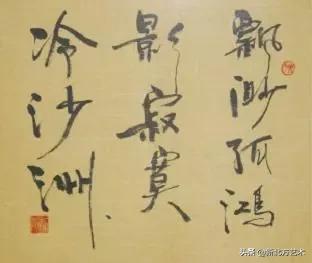 飘渺孤鸿
影寂寞
冷沙洲
头条@新北方艺术